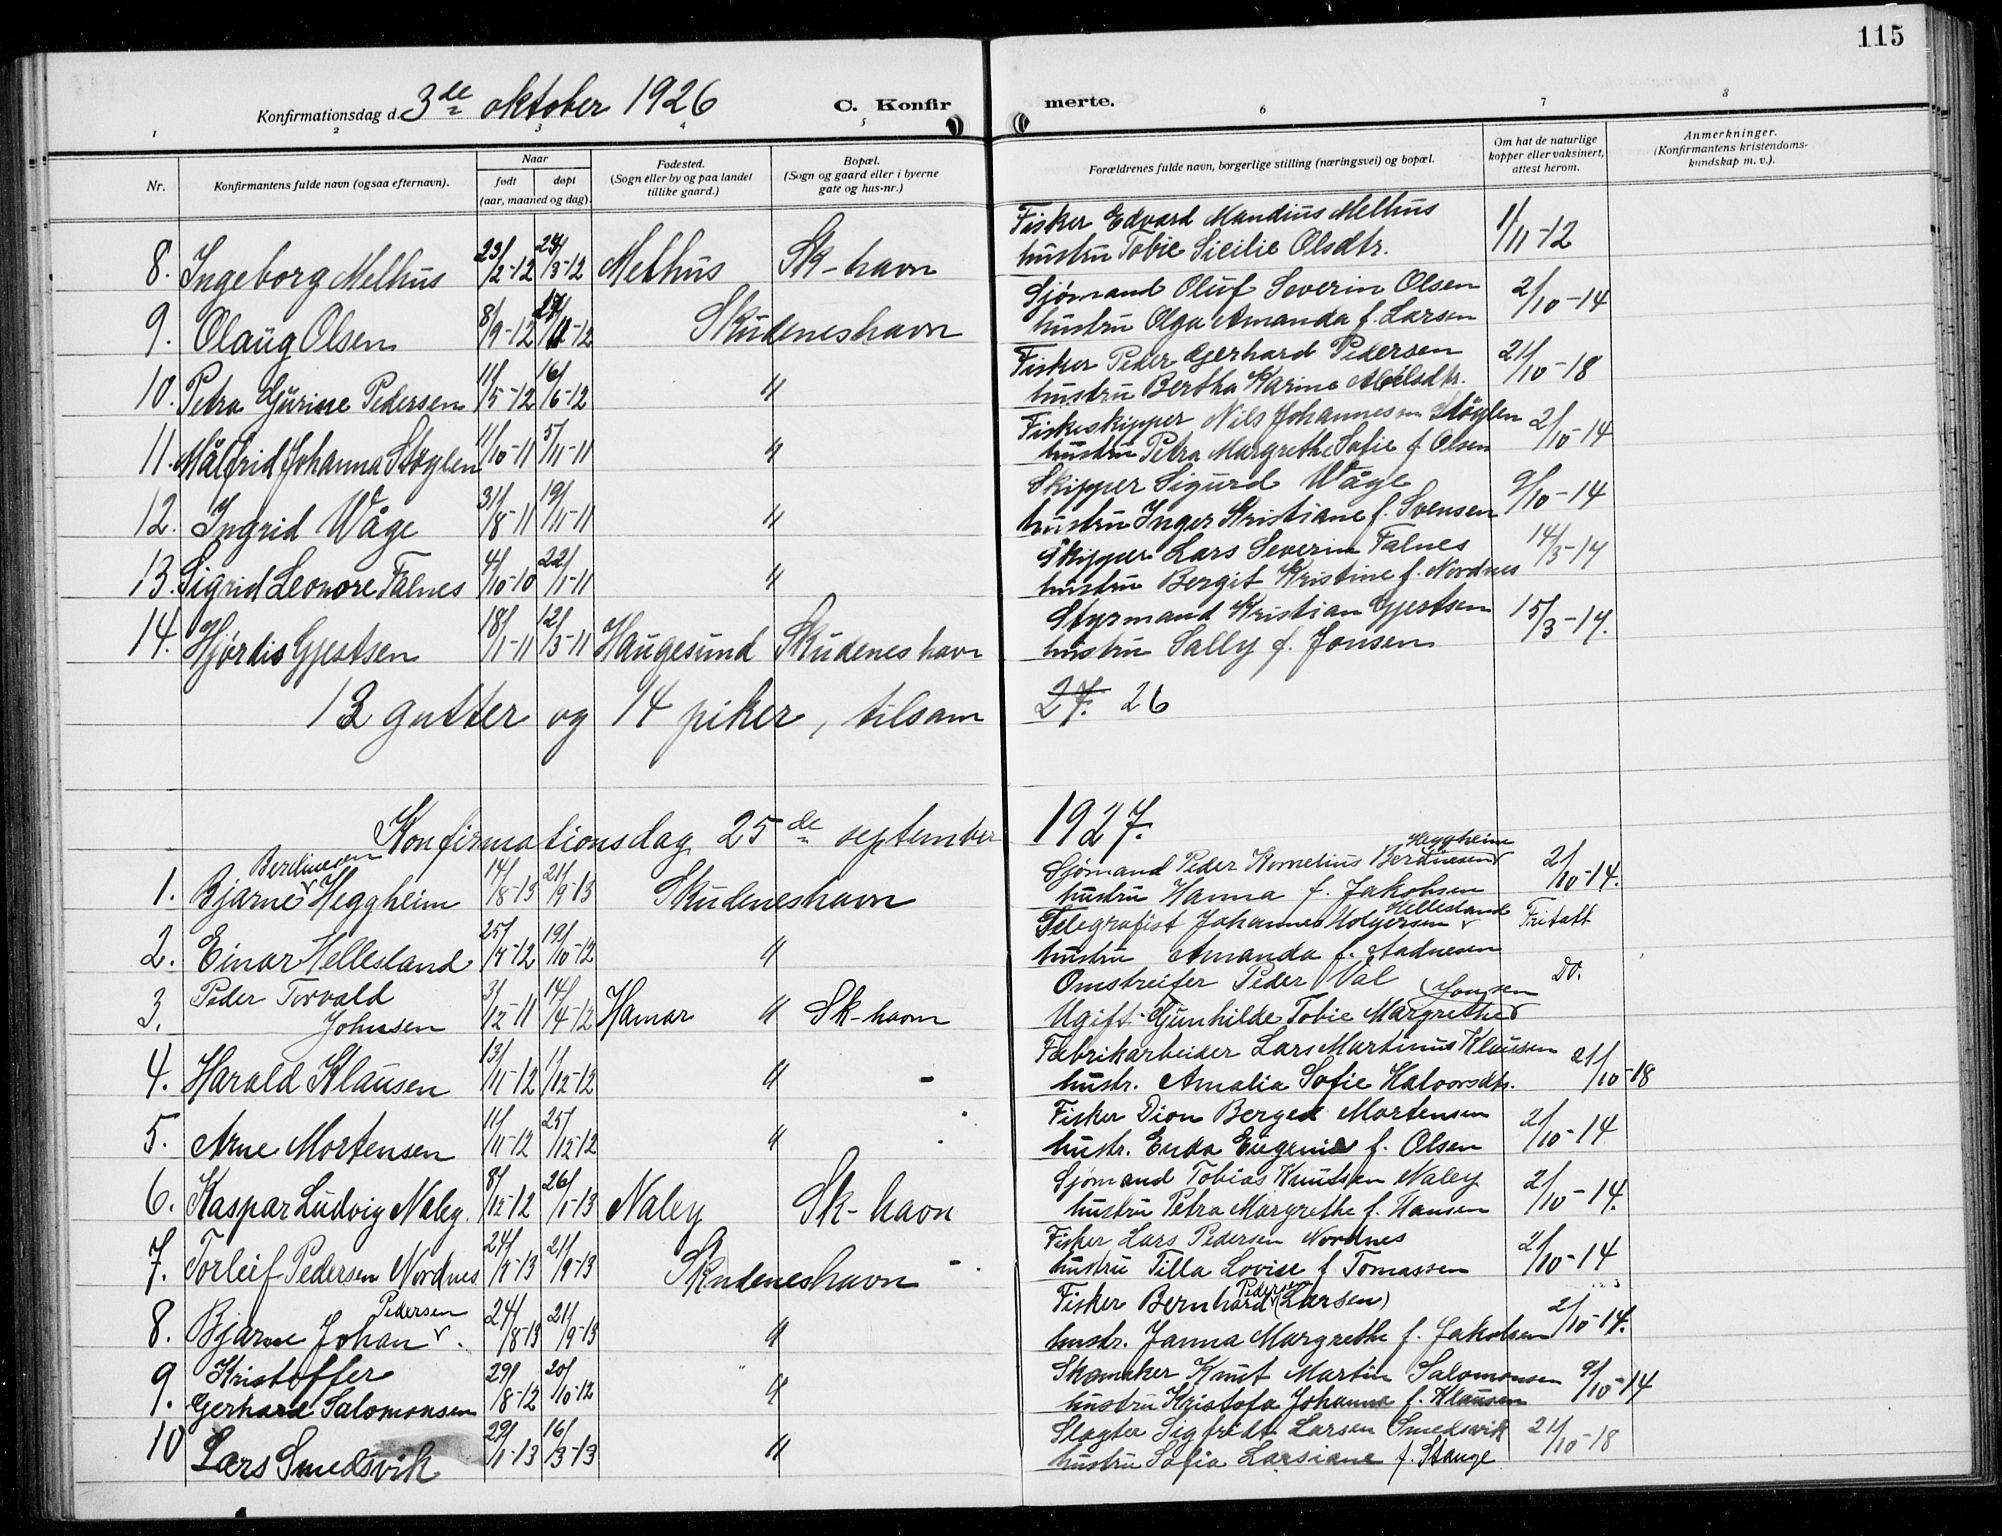 115
Konfirmationsdag d. 3de oktober 1926 C. Konfirmerte.
1 2 3 4 5 6 7 8
Nr. Konfirmantens fulde navn (ogsaa efternavn). Naar født døpt (aar, maaned og dag) Fødested. (Sogn eller by og paa landet tillike gaard.) Bopæl. (Sogn og gaard eller i byerne gate og hus-nr.) Forældrenes fulde navn, borgerlige stilling (næringsvei) og bopæl. Om hat de naturlige kopper eller vaksinert, attest herom. Anmerkninger. (Konfirmantens kristendomskundskap m. v.).
8. Ingeborg Melhus 23/2-12 24/3-12 Melhus Sk-havn Fisker Edvard Mandius Melhus 1/11-12
hustru Tobie Sicilie Olsdtr.
9. Olaug Olsen 8/9-12 17/11-12 Skudeneshavn Sjømand Oluf Severin Olsen 2/10-14
hustru Olga Amanda f. Larsen
10. Petra Gurine Pedersen 11/5-12 16/6-12 " Fisker Peder Gerhard Pedersen 21/10-18
hustru Bertha Karine
11. Målfrid Johanna Støglen 11/10-11 5/11-11 " Fiskeskipper Nils Johannessen Støglen 2/10-14
hustru Petra Margrethe Sofie f. Olsen
12. Ingrid Wåge 31/8-11 19/11-11 " Skipper Sigurd Wåge 9/10-14
hustru Inger Kristiane f. Svensen
13. Sigrid Leonore Falnes 4/10-10 22/1-11 " Skipper Lars Severin Falnes 14/3-14
hustru Bergit Kristine f. Nordnes
14. Hjørdis Gjestsen 18/1-11 12/3-11 Haugesund Skudeneshavn Styrmand Kristian Gjestsen 15/3-14.
hustru Sally f. Jonsen
12 gutter og 14 piker, tilsam 27. 26
Konfirmationsdag 25de september 1927.
1. Bjarne Berdinesen Heggheim 14/8-13 21/9-13 Skudeneshavn Sjømand Peder Kornelius Berdinesen Heggheim 2/10-14.
hustru Hanna f. Jakobsen
2. Einar Hellesland 25/4-12 19/10-12 " Telegrafist Johannes Holgersen Hellesland Fritatt
hustru Amanda f. Aadnesen
3. Peder Torvald Johnsen 3/12-11 14/4-12 Hamar " Sk-havn Omstreifer Peder Val Do.
Ugift Gunhilde Tobie Margrethe Jonsen
4. Harald Klausen 13/11-12 11/12-12 " - Fabrikarbeider Lars Martinus Klausen 21/10-18
hustr. Amalia Sofie Halvorsdtr.
5. Arne Mortensen 11/11-12 25/12-12 " Fisker Dion Berged Mortensen 2/10-14
hustr. Enda Eugenie f. Olsen
6. Kaspar Ludvig Naley. 8/12-12 26/1-13 Naley Sk-havn Sjømand Tobias Knutsen Naley 2/10-14.
hustru Petra Margrethe f. Hansen
7. Torleif Pedersen Nordnes 24/4-13 21/9-13 Skudeneshavn - Fisker Lars Pedersen Nordnes 2/10-14
hustru Tilla Lovise f. Tomassen
8. Bjarne Johan Pedersen. 24/8-13 21/9-13 " Fisker Bernhard Pedersen (Larsen) 2/10-14.
hustr. Janna Margrethe f. Jakobsen
9. Kristoffer Gerhard Salomonsen 29/8-12 20/10-12 " Skomaker Knut Martin Salomonsen 9/10-14
hustru Kristofa Johanna f. Klausen
10 Lars Smedsvik 29/1-13 16/3-13 " Slagter Sigfredt Larsen Smedsvik 21/10-18
hustru Sofia Larsiane f. Stange